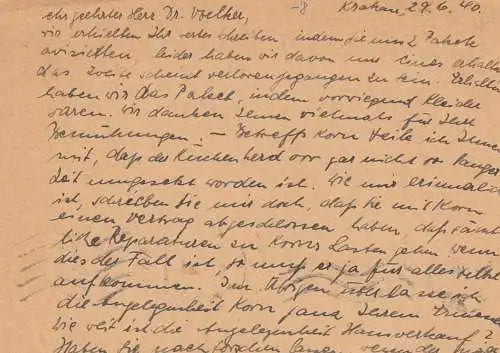 Krakau, 29.6.40.
Sehr geehrter Herr Dr. Voelker,
wir erhielten Ihr wertes Schreiben, indem Sie uns 2 Pakete
avisierten, leider haben wir davon nur eines erhalten
das zweite scheint verlorengegangen zu sein. Erhalten
haben wir das Paket, indem vorwiegend Kleider
waren. Wir danken Ihnen vielmals für Ihre
Bemühungen. – Betreffs Korn teile ich Ihnen
mit, daß der Küchenherd vor gar nicht so langer
Zeit umgesetzt worden ist. Wie mir erinnerlich
ist, schreiben Sie mir doch, daß Sie mit Korn
einen Vertrag abgeschlossen haben, daß sämt-
liche Reparaturen zu Korns Lasten gehen. Wenn
dies der Fall ist, so muß er ja für alles selbst
aufkommen. Im Übrigen überlasse ich
die Angelegenheit Korn ganz Ihrem
Wie weit ist die Angelegenheit Hausverkauf?
Haben Sie nach